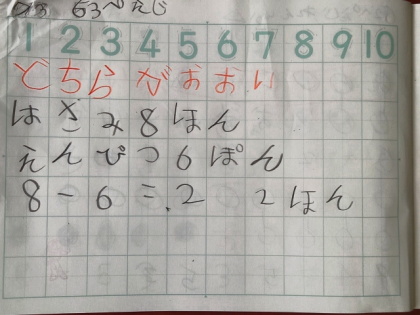 63ぺえじ
1 2 3 4 5 6 7 8 9 10
どちらがおおい
はさみ8ほん
えんぴつ6ぽん
8-6=2 2ほん